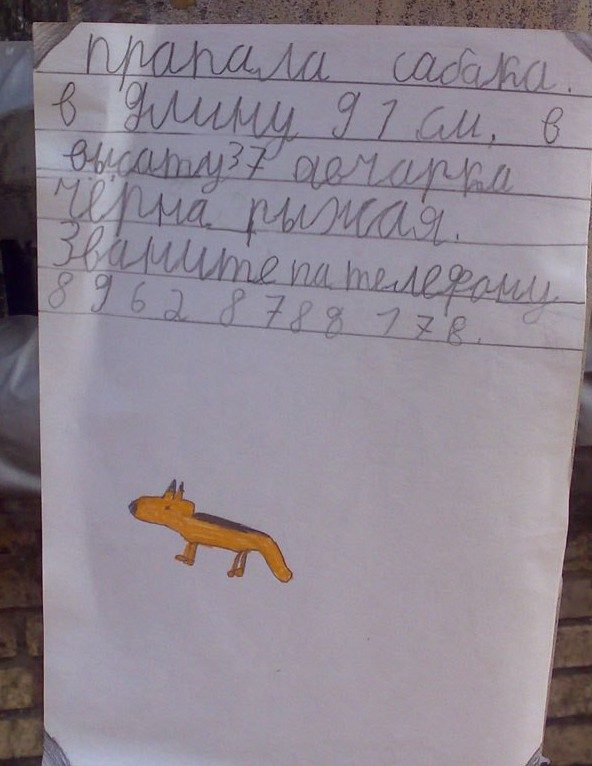 прапала сабака.
в длину 91 см, в
высату 37 авчарка
чёрна рыжая.
Званите па телефону
8 962 8788 178.